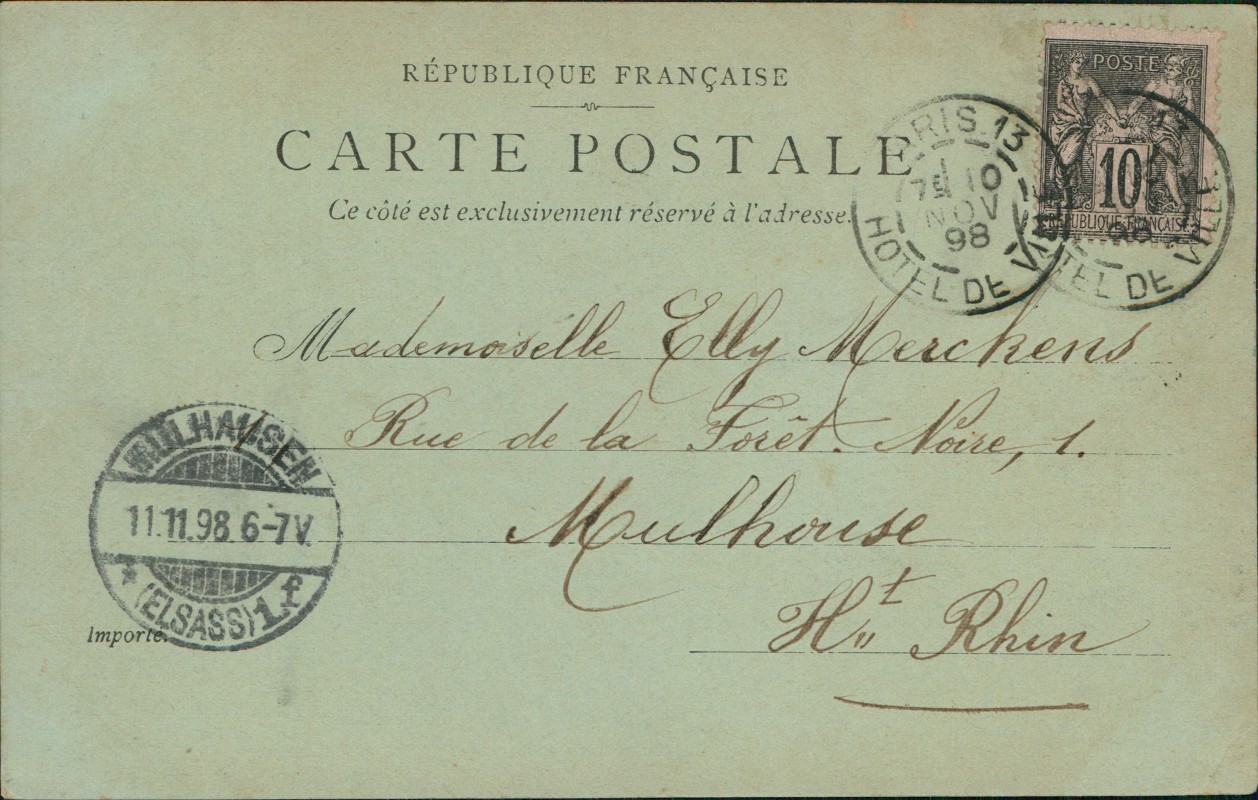 RÉPUBLIQUE FRANÇAISE
CARTE POSTALE
Ce côté est exclusivement réservé à l'adresse.
POSTE
10
RÉPUBLIQUE FRANÇAISE
PARIS. 13
10
NOV
98
HOTEL DE VILLE
98
HOTEL DE VILLE
Mademoiselle Elly Merckens
Rue de la Forêt-Noire, 1.
Mulhouse
Ht Rhin
MÜLHAUSEN
11.11.98 6-7V.
* (ELSASS) 1.f
Importé.